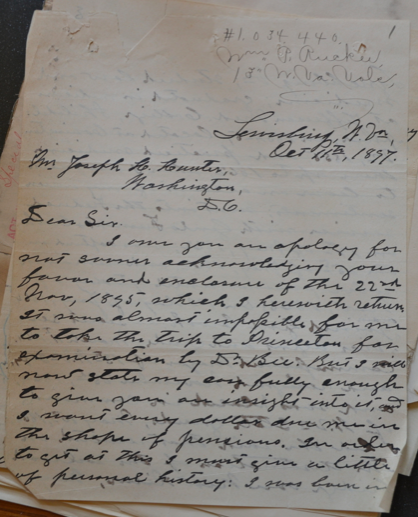 1
#1.034.440
Wm. P. Rucker,
13" W. Va. Vols,
Lewisburg, W. Va,
Oct 11th, 1897.
Mr. Joseph H. Hunter,
Washington,
D.C.
Dear Sir.
I owe you an apology for
not sooner acknowledging your
favor and enclosure of the 22nd
Nov, 1895, which I herewith return
It was almost impossible for me
to take the trip to Princeton for
examination by Dr. Bee. But I will
now state my case fully enough
to give you an insight into it, as
I want every dollar due me in
the shape of pensions. In order
to get at this I must give a little
of personal history: I was born in